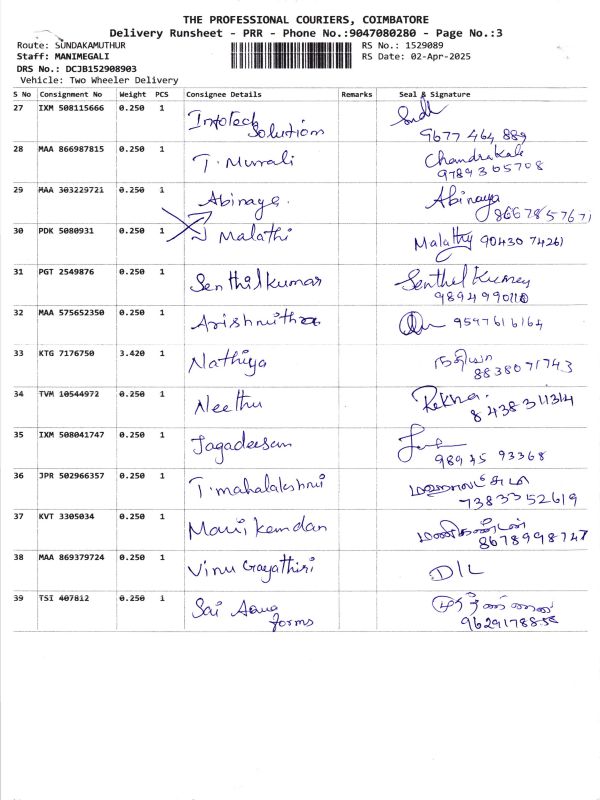 THE PROFESSIONAL COURIERS, COIMBATORE
Delivery Runsheet - PRR - Phone No.:9047080280 - Page No.:3
Route: SUNDAKAMUTHUR RS No.: 1529089
Staff: MANIMEGALI RS Date: 02-Apr-2025
DRS No.: DCJB152908903
Vehicle: Two Wheeler Delivery
S No Consignment No Weight PCS Consignee Details Remarks Seal & Signature
27 IXM 508115666 0.250 1 Infotech
Solutions
9677 464 889
28 MAA 866987815 0.250 1 T. Murali Chandrakala
9789305708
29 MAA 303229721 0.250 1 Abinaya. Abinaya
8667857671
30 PDK 5080931 0.250 1 J Malathi Malathy 9043074261
31 PGT 2549876 0.250 1 Senthilkumar
9894990110
32 MAA 575652350 0.250 1 9597616164
33 KTG 7176750 3.420 1 Nathiya நதியா
8838071743
34 TVM 10544972 0.250 1 Neethu Rekha.
8438311314
35 IXM 508041747 0.250 1 Jagadeesan
98945 93368
36 JPR 502966357 0.250 1 T. mahalakshmi
7383352619
37 KVT 3305034 0.250 1 Mani kandan மணிகண்டன்
8678998747
38 MAA 869379724 0.250 1 Vinu Gayathiri D/L
39 TSI 407812 0.250 1 Sai
forms